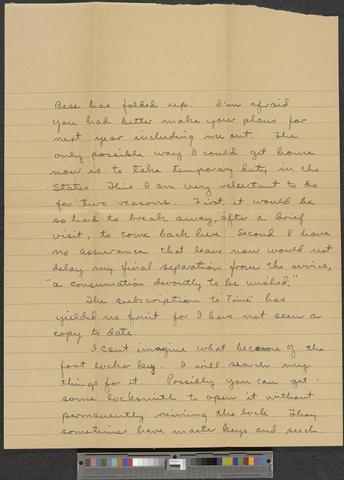 Base has folded up. I'm afraid
you had better make your plans for
next year including me out. The
only possible way I could get home
now is to take temporary duty in the
States. This I am very reluctant to do
for two reasons. First, it would be
so hard to break away, after a brief
visit, to come back here. Second I have
no assurance that leave now would not
delay my final separation from the service,
"a consumation devoutly to be wished."
The subscription to "Time" has
yielded no fruit for I have not seen a
copy to date.
I can't imagine what became of the
foot locker key. I will search my
things for it. Possibly you can get
some locksmith to open it without
permanently ruining the lock. They
sometimes have master keys and such.